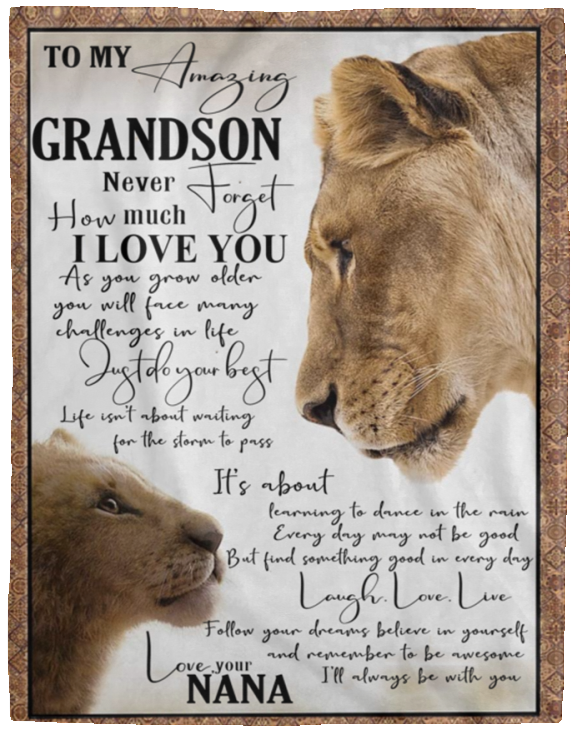 TO MY Amazing
GRANDSON
Never Forget
How much
I LOVE YOU
As you grow older
you will face many
challenges in life
Just do your best
Life isn't about waiting
for the storm to pass
It's about
learning to dance in the rain
Every day may not be good
But find something good in every day
Laugh. Love. Live
Follow your dreams believe in yourself
and remember to be awesome
I'll always be with you
Love, your
NANA